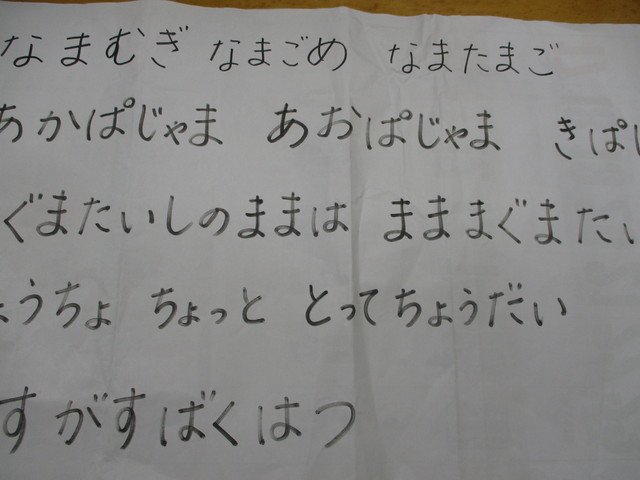 なまむぎ なまごめ なまたまご
あかぱじゃま あおぱじゃま きぱじ
ぐまたいしのままは まままぐまたい
ょうちょ ちょっと とってちょうだい
すがすばくはつ